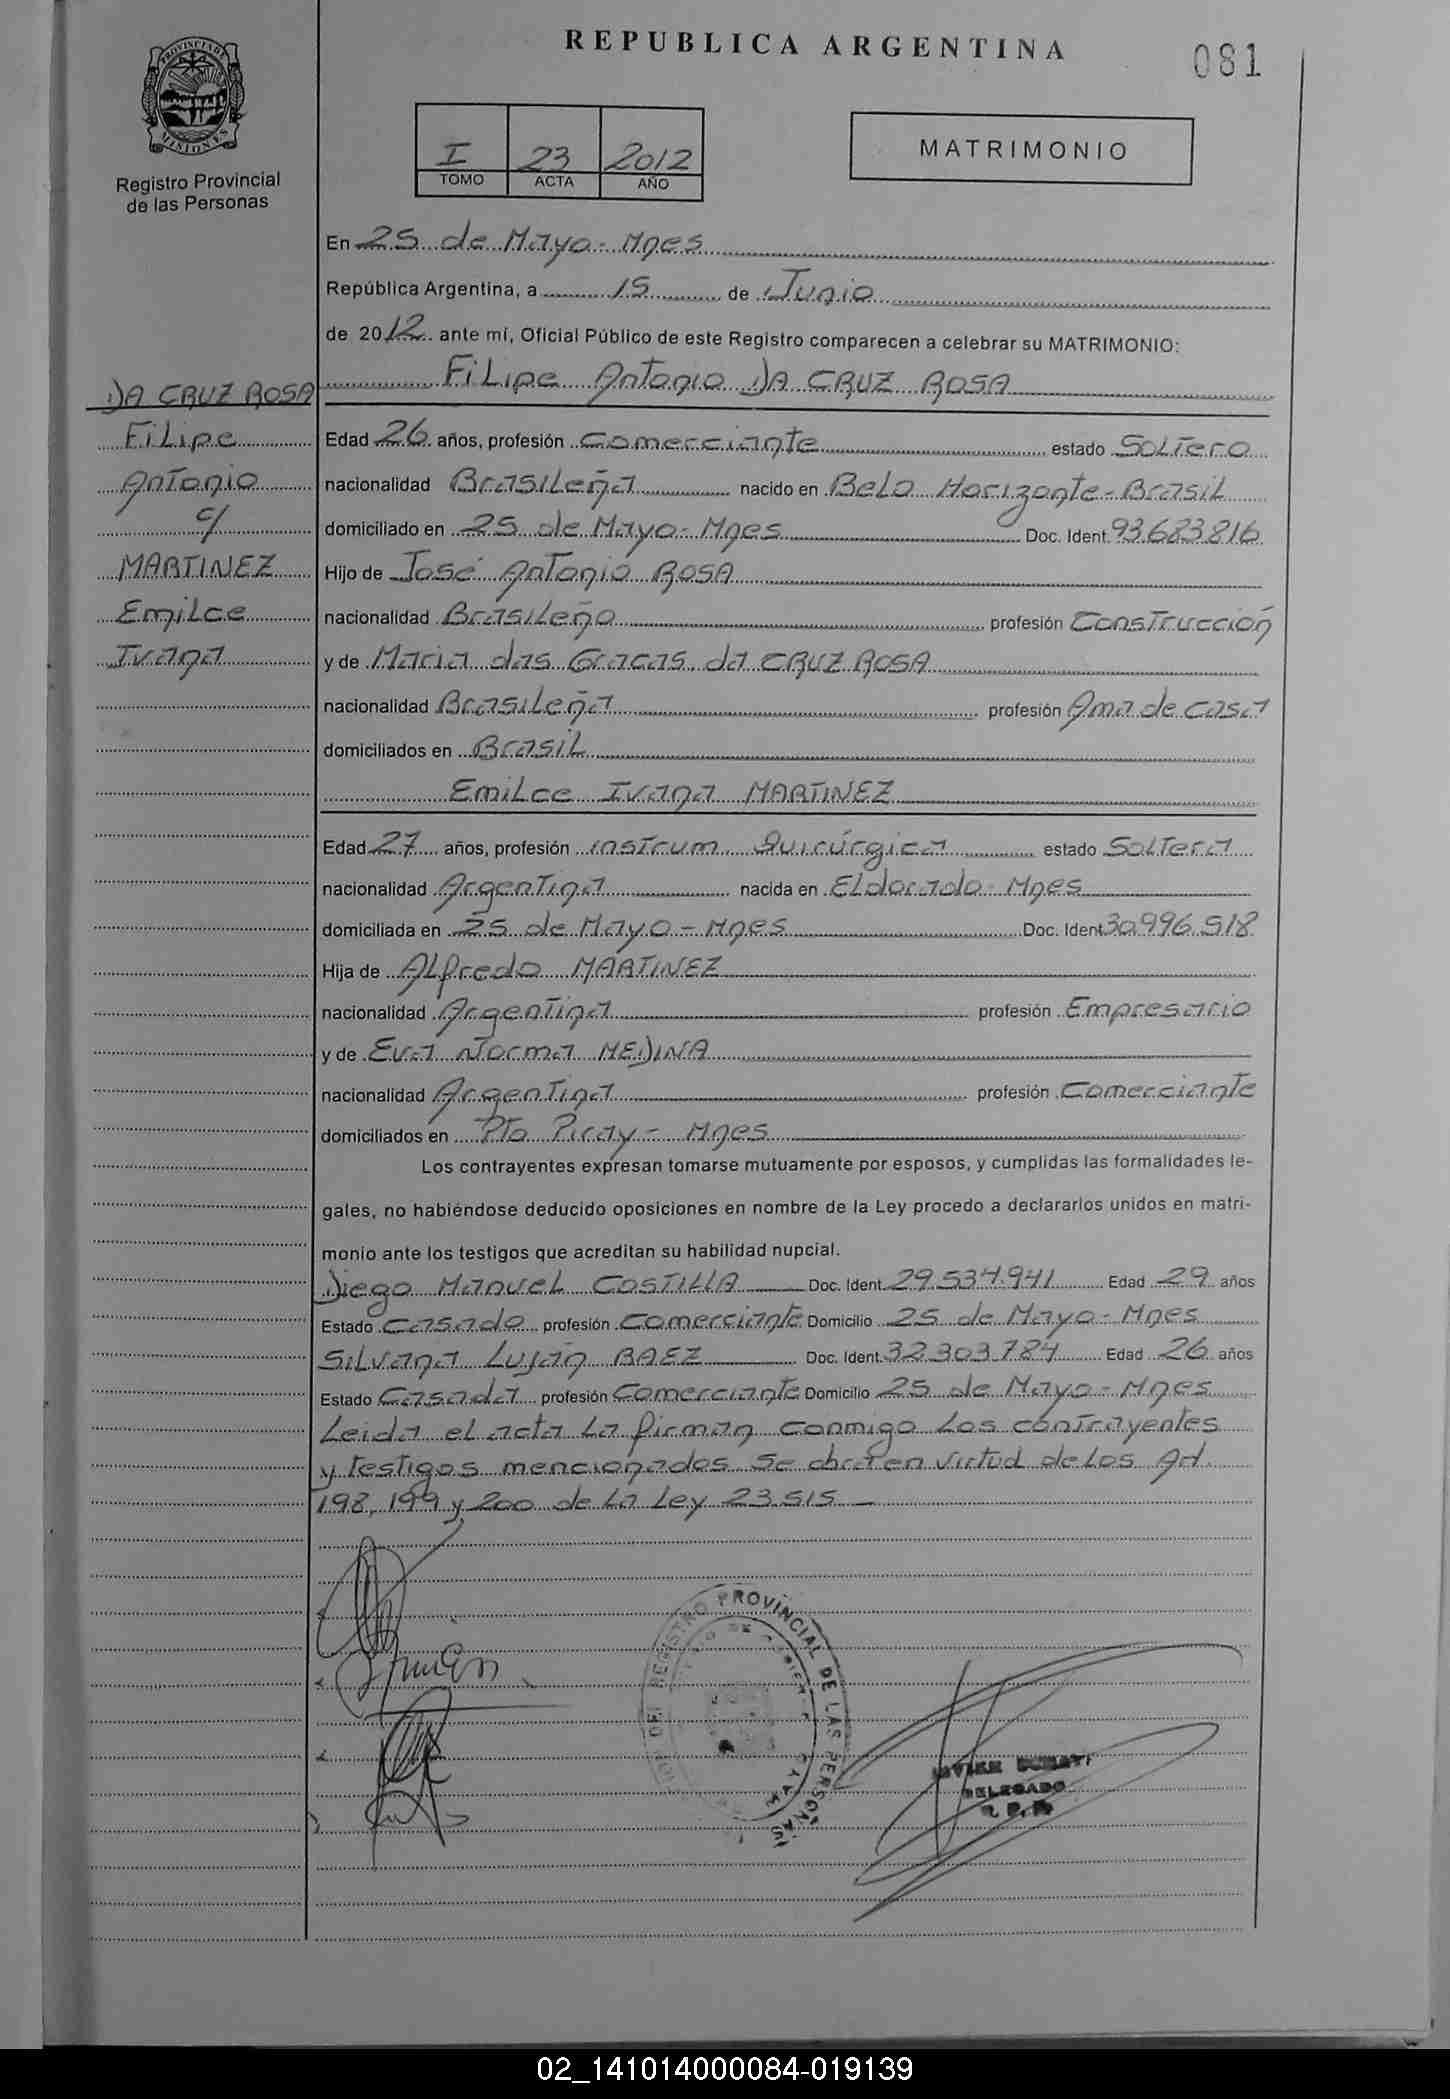 REPUBLICA ARGENTINA
081
PROVINCIA DE
MISIONES
Registro Provincial
de las Personas
I 23 2012
TOMO ACTA AÑO
MATRIMONIO
En 25 de Mayo - Mnes
República Argentina, a 15 de Junio
de 2012 ante mí, Oficial Público de este Registro comparecen a celebrar su MATRIMONIO:
Filipe Antonio DA CRUZ ROSA
DA CRUZ ROSA
Filipe
Antonio
c/
MARTINEZ
Emilce
Ivana
Edad 26 años, profesión Comerciante estado Soltero
nacionalidad Brasileña nacido en Belo Horizonte - Brasil
domiciliado en 25 de Mayo - Mnes Doc. Ident. 93.683.816
Hijo de José Antonio ROSA
nacionalidad Brasileño profesión Construcción
y de Maria das Gracas da CRUZ ROSA
nacionalidad Brasileña profesión Ama de casa
domiciliados en Brasil
Emilce Ivana MARTINEZ
Edad 27 años, profesión instrum Quirúrgica estado Soltera
nacionalidad Argentina nacida en Eldorado - Mnes
domiciliada en 25 de Mayo - Mnes Doc. Ident 30.996.518
Hija de Alfredo MARTINEZ
nacionalidad Argentina profesión Empresario
y de Eva Norma MEDINA
nacionalidad Argentina profesión Comerciante
domiciliados en Pto Piray - Mnes
Los contrayentes expresan tomarse mutuamente por esposos, y cumplidas las formalidades le-
gales, no habiéndose deducido oposiciones en nombre de la Ley procedo a declararlos unidos en matri-
monio ante los testigos que acreditan su habilidad nupcial.
Diego Manuel COSTILLA Doc. Ident. 29.534.941 Edad 29 años
Estado Casado profesión Comerciante Domicilio 25 de Mayo - Mnes
Silvana Luján BAEZ Doc. Ident. 32.303.784 Edad 26 años
Estado Casada profesión Comerciante Domicilio 25 de Mayo - Mnes
Leida el acta la firman conmigo los contrayentes
y testigos mencionados se obrar en virtud de los Art
198, 199 y 200 de la Ley 23.515 -
REGISTRO PROVINCIAL DE LAS PERSONAS
DELEGADO
02_141014000084-019139